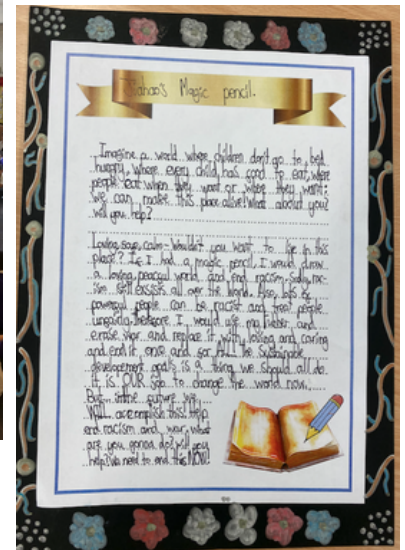 Jiahao's Magic pencil.
Imagine a world where children don't go to bed
hungry, where every child has food to eat, where
people eat when they want or where they want.
We can make this place alive! What about you?
will you help?
Loving, calm - Wouldn't you want to live in this
place? If I had a magic pencil, I would draw
a loving, peaceful world and end racism. Sadly, rac-
ism still exsists all over the world. Also, lots of
powerful people can be racist and treat people
Therefore, I would use my and
erase war and replace it with loving and caring
and end it once and for ALL. The Sustainable
development goals is a thing we should all do.
It is OUR job to change the world now.
But in the future we
WILL accomplish this! Help
end racism and war, what
are you gonna do? will you
help? We need to end this NOW!